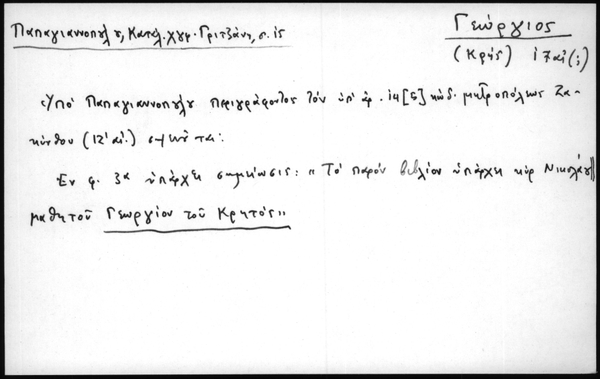 Παπαγιαννοπούλου, Κατάλ. χφφ. Γριτζάνη, σ. 15
Γεώργιος
(Κρής)
Ὑπό Παπαγιαννοπούλου περιγράφοντος τόν ὑπ' ἀρ. 14[5] κώδ. μητροπόλεως Ζα-
κύνθου (12' αἰ.) σημειοῦται:
Ἐν φ. 3α ὑπάρχει σημείωσις: «Τό παρόν βιβλίον ὑπάρχει κύρ Νικολάου
μαθητοῦ Γεωργίου τοῦ Κρητός»